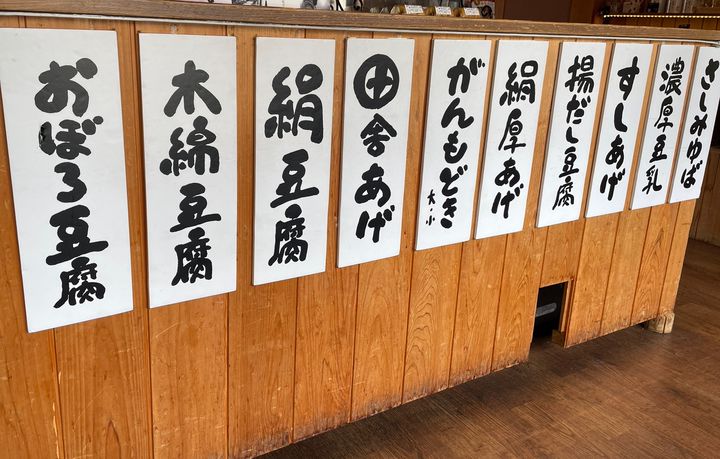 おぼろ豆腐
木綿豆腐
絹豆腐
田舎あげ
がんもどき
大・小
絹厚あげ
揚だし豆腐
すしあげ
濃厚豆乳
さしみゆば